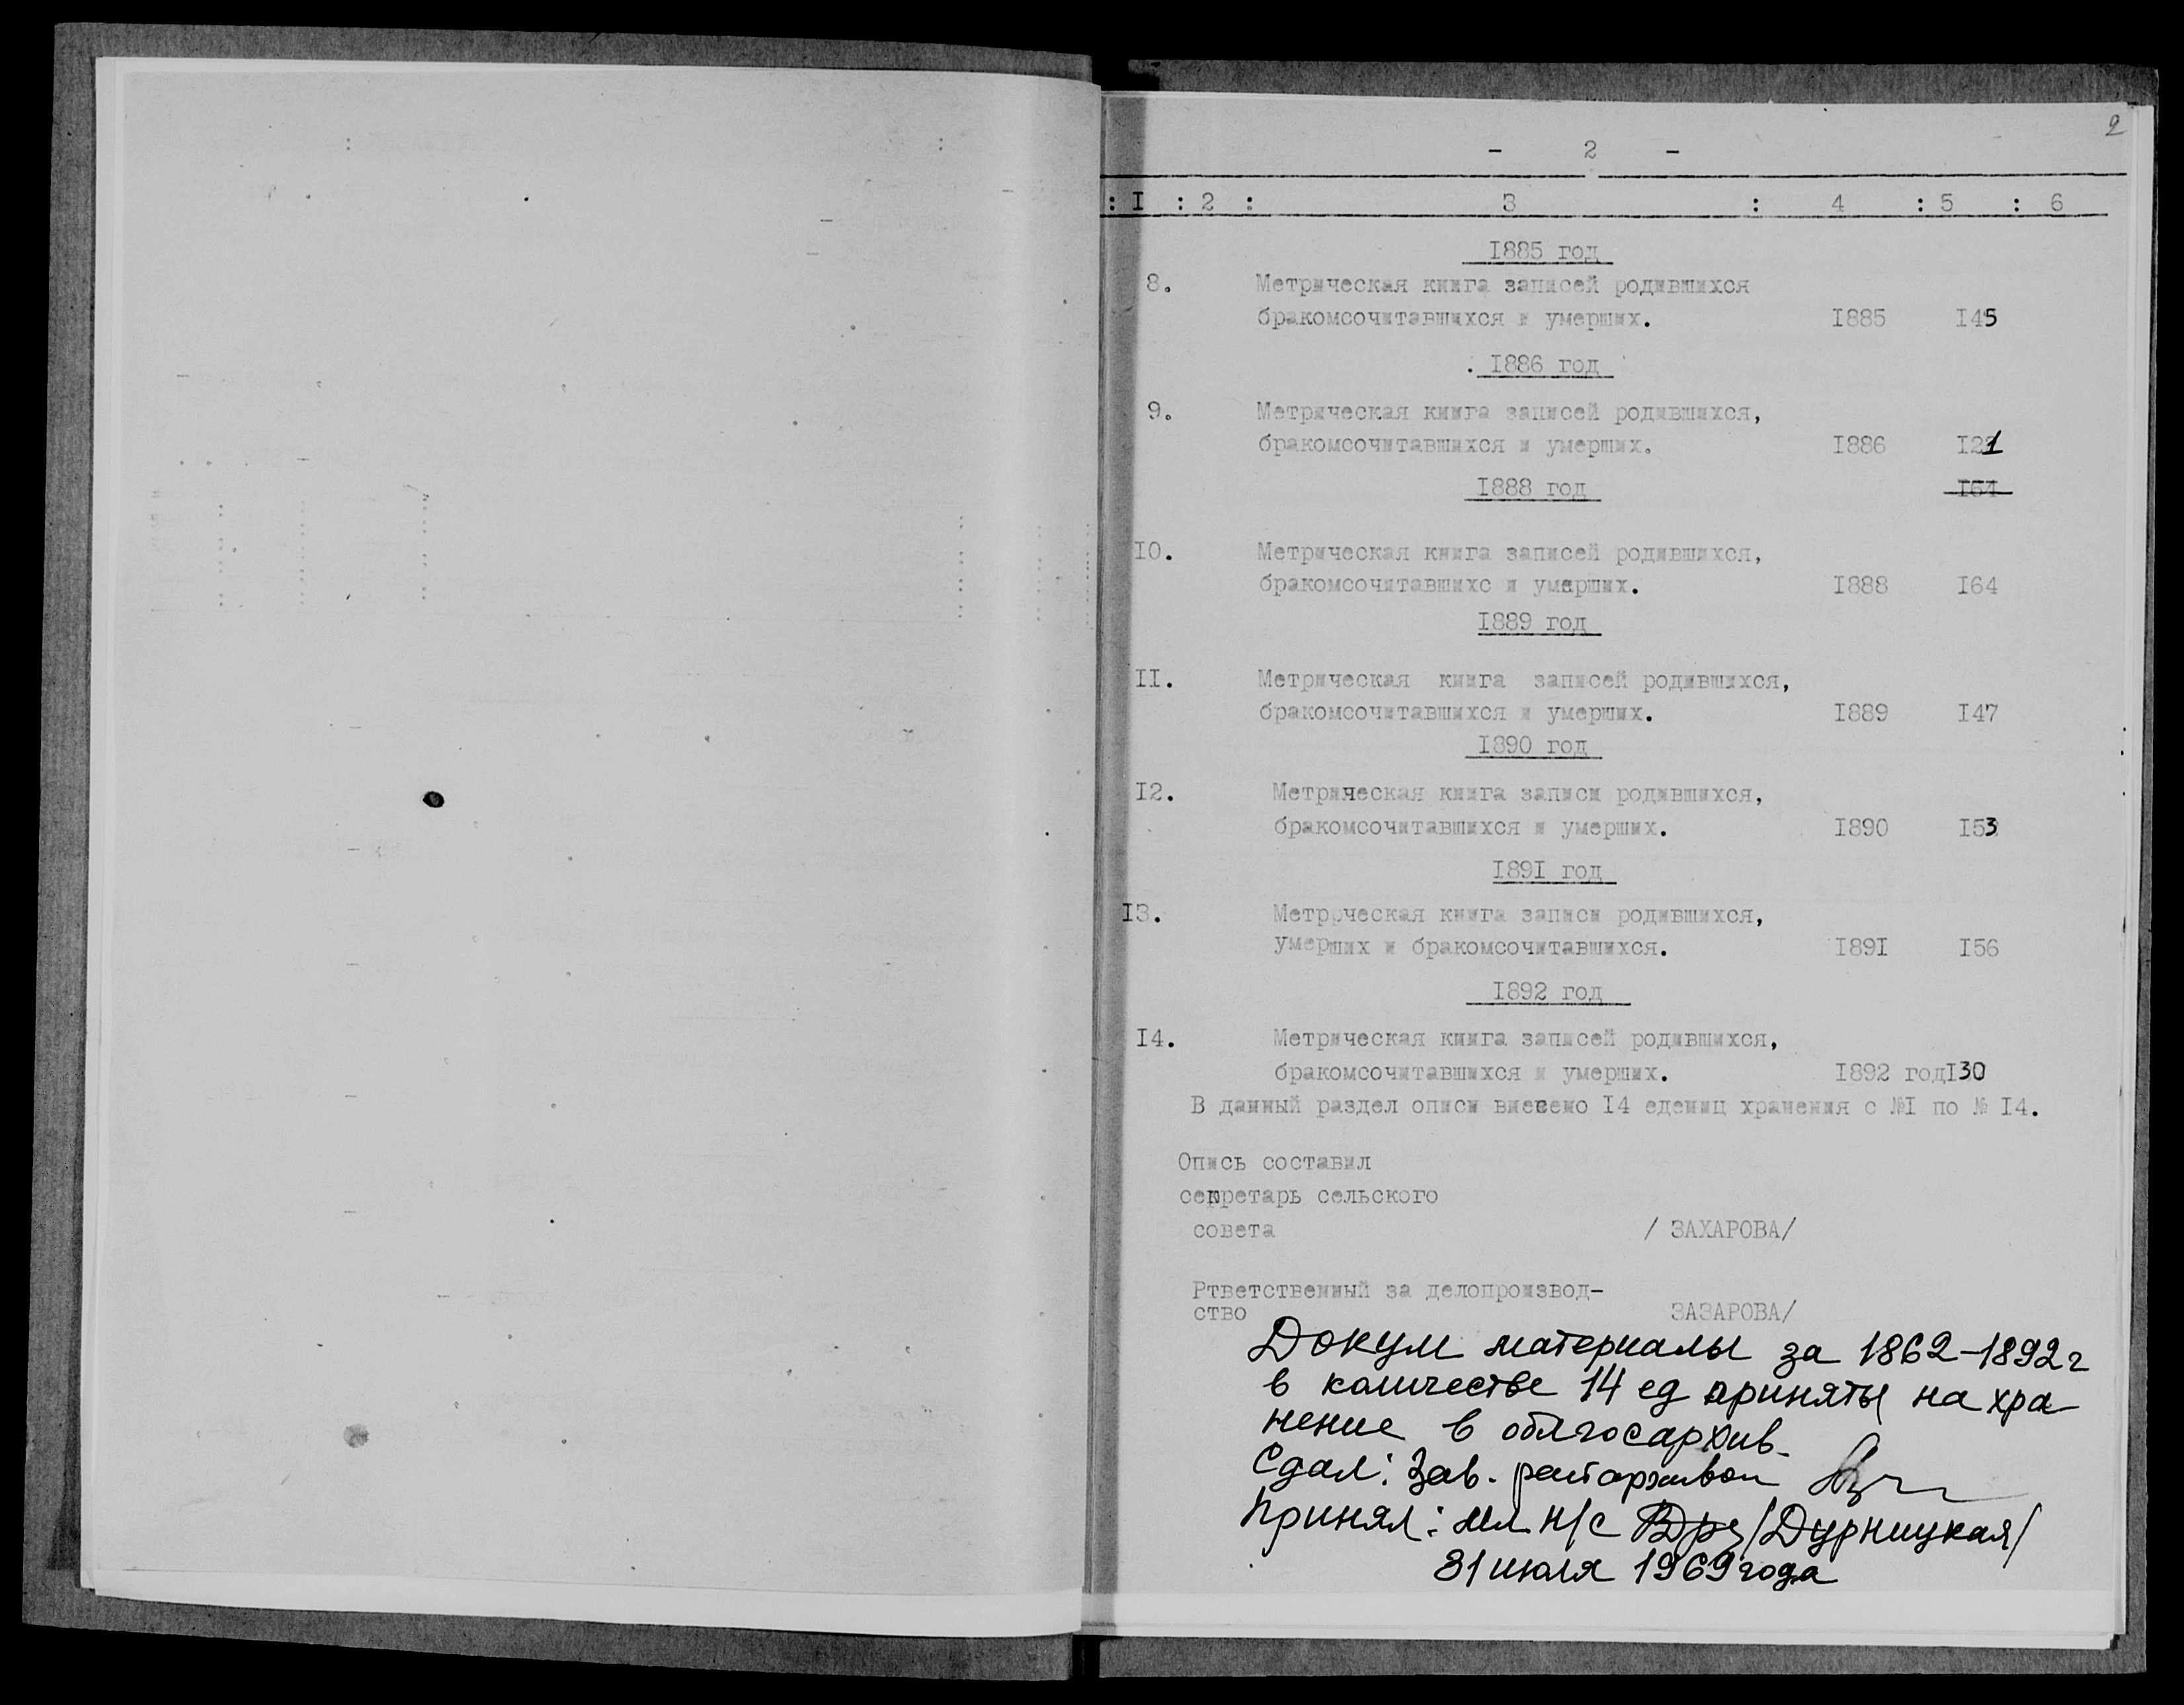 2
- 2 -
: I : 2 : 3 : 4 : 5 : 6
1885 год
8. Метрическая книга записей родившихся
бракомсочитавшихся и умерших. 1885 145
1886 год
9. Метрическая книга записей родившихся,
бракомсочитавшихся и умерших. 1886 121
1888 год 164
10. Метрическая книга записей родившихся,
бракомсочитавшихс и умерших. 1888 164
1889 год
II. Метрическая книга записей родившихся,
бракомсочитавшихся и умерших. 1889 147
1890 год
12. Метрическая книга записи родившихся,
бракомсочитавшихся и умерших. 1890 153
1891 год
13. Метррческая книга записи родившихся,
умерших и бракомсочитавшихся. 1891 156
1892 год
14. Метрическая книга записей родившихся,
бракомсочитавшихся и умерших. 1892 год 130
В данный раздел описи внесено 14 едениц хранения с №1 по № 14.
Опись составил
секретарь сельского
совета / ЗАХАРОВА/
Ртветственный за делопроизвод-
ство ЗАЗАРОВА/
Докум материалы за 1862-1892 г
в количестве 14 ед приняты на хра
нение в облгосархив.
Сдал: Зав. райархивом
Принял: мл н/с /Дурницкая/
31 июля 1969 года